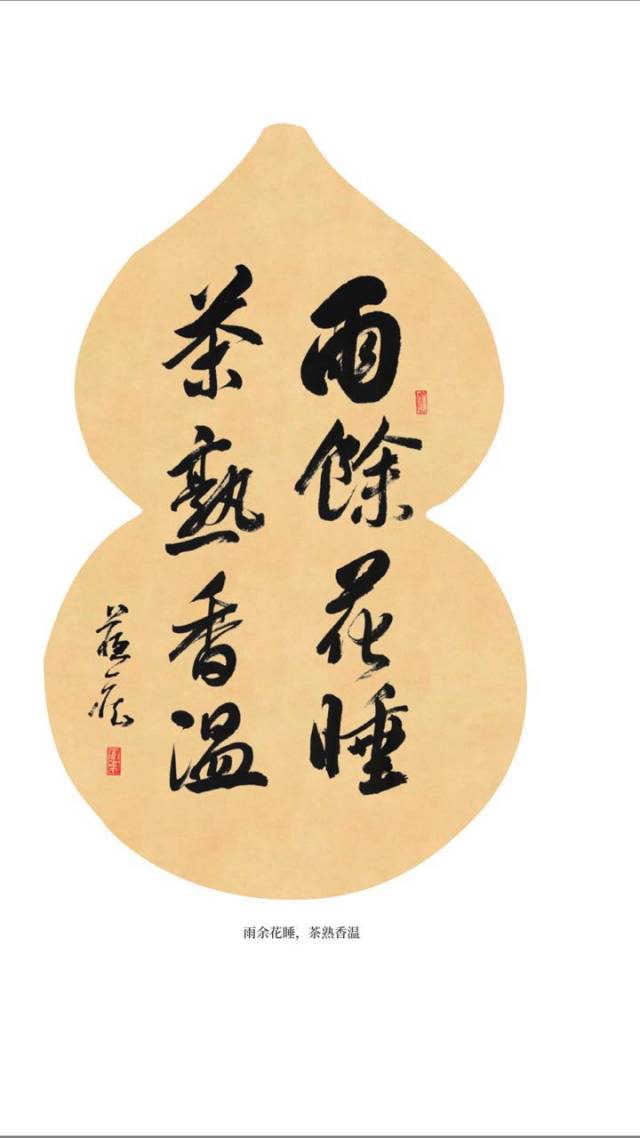 雨餘花睡
茶熟香温
雨余花睡，茶熟香温